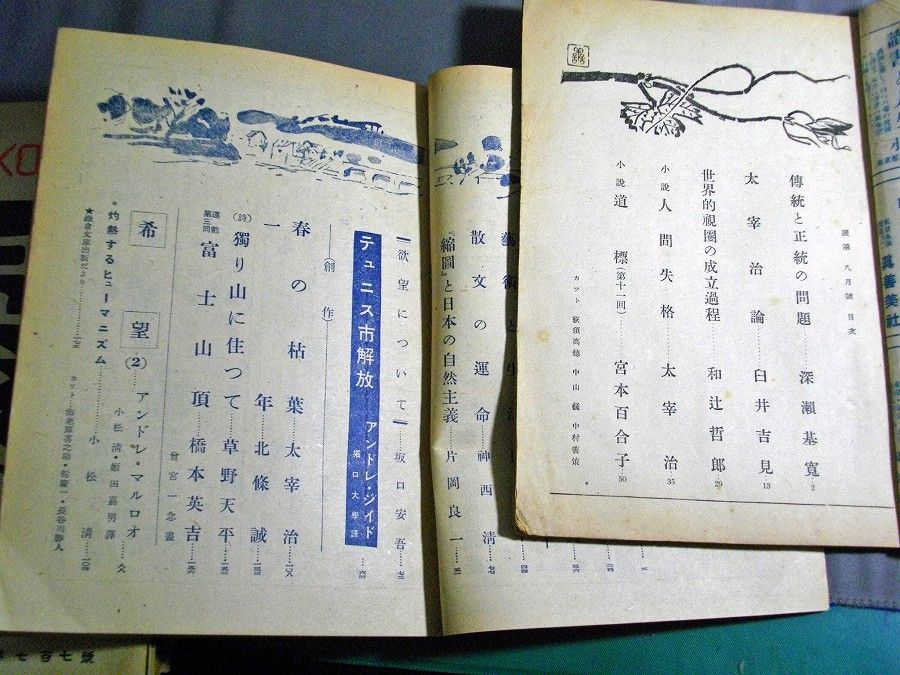 展望 八月號 目次
傳統と正統の問題……深瀬基寛 2
太宰治論……臼井吉見 13
世界的視圏の成立過程……和辻哲郎 29
小説 人間失格……太宰治 35
小説 道標(第十一回)……宮本百合子 50
カット 荻須高徳 中山巍 中村善策
藝術と
『縮圖』と日本の自然主義……片岡良一
散文の運命……神西清
『欲望について』……坂口安吾
テュニス市解放……アンドレ・ジイド
堀口大學譯
(創作)
春の枯葉……太宰治
一年……北條誠
(詩) 獨り山に住つて……草野天平
連載第三回 富士山頂……橋本英吉
曾宮一念畫
希望(2)……アンドレ・マルロオ
小松清・姫田嘉男譯
*灼熱するヒューマニズム……小松清
★鎌倉文庫出版だより
眞善美社
七百七號
KO